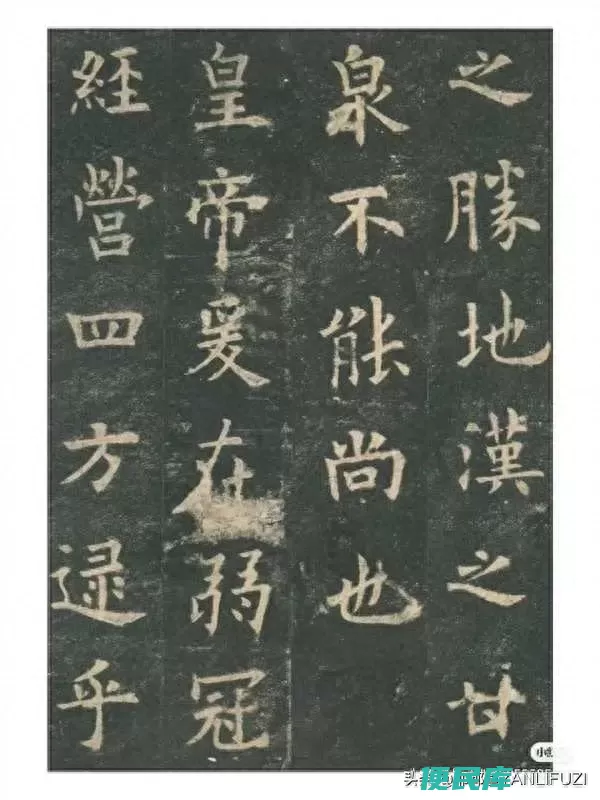 之勝地漢之甘
泉不能尚也
皇帝爰在弱冠
經營四方逯乎
小
头条 @ZANLIFUZI
便民库